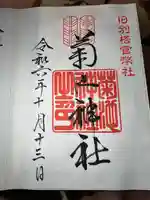 旧別格官幣社
菊池神社
菊池
神社
之印
令和六年十月十三日